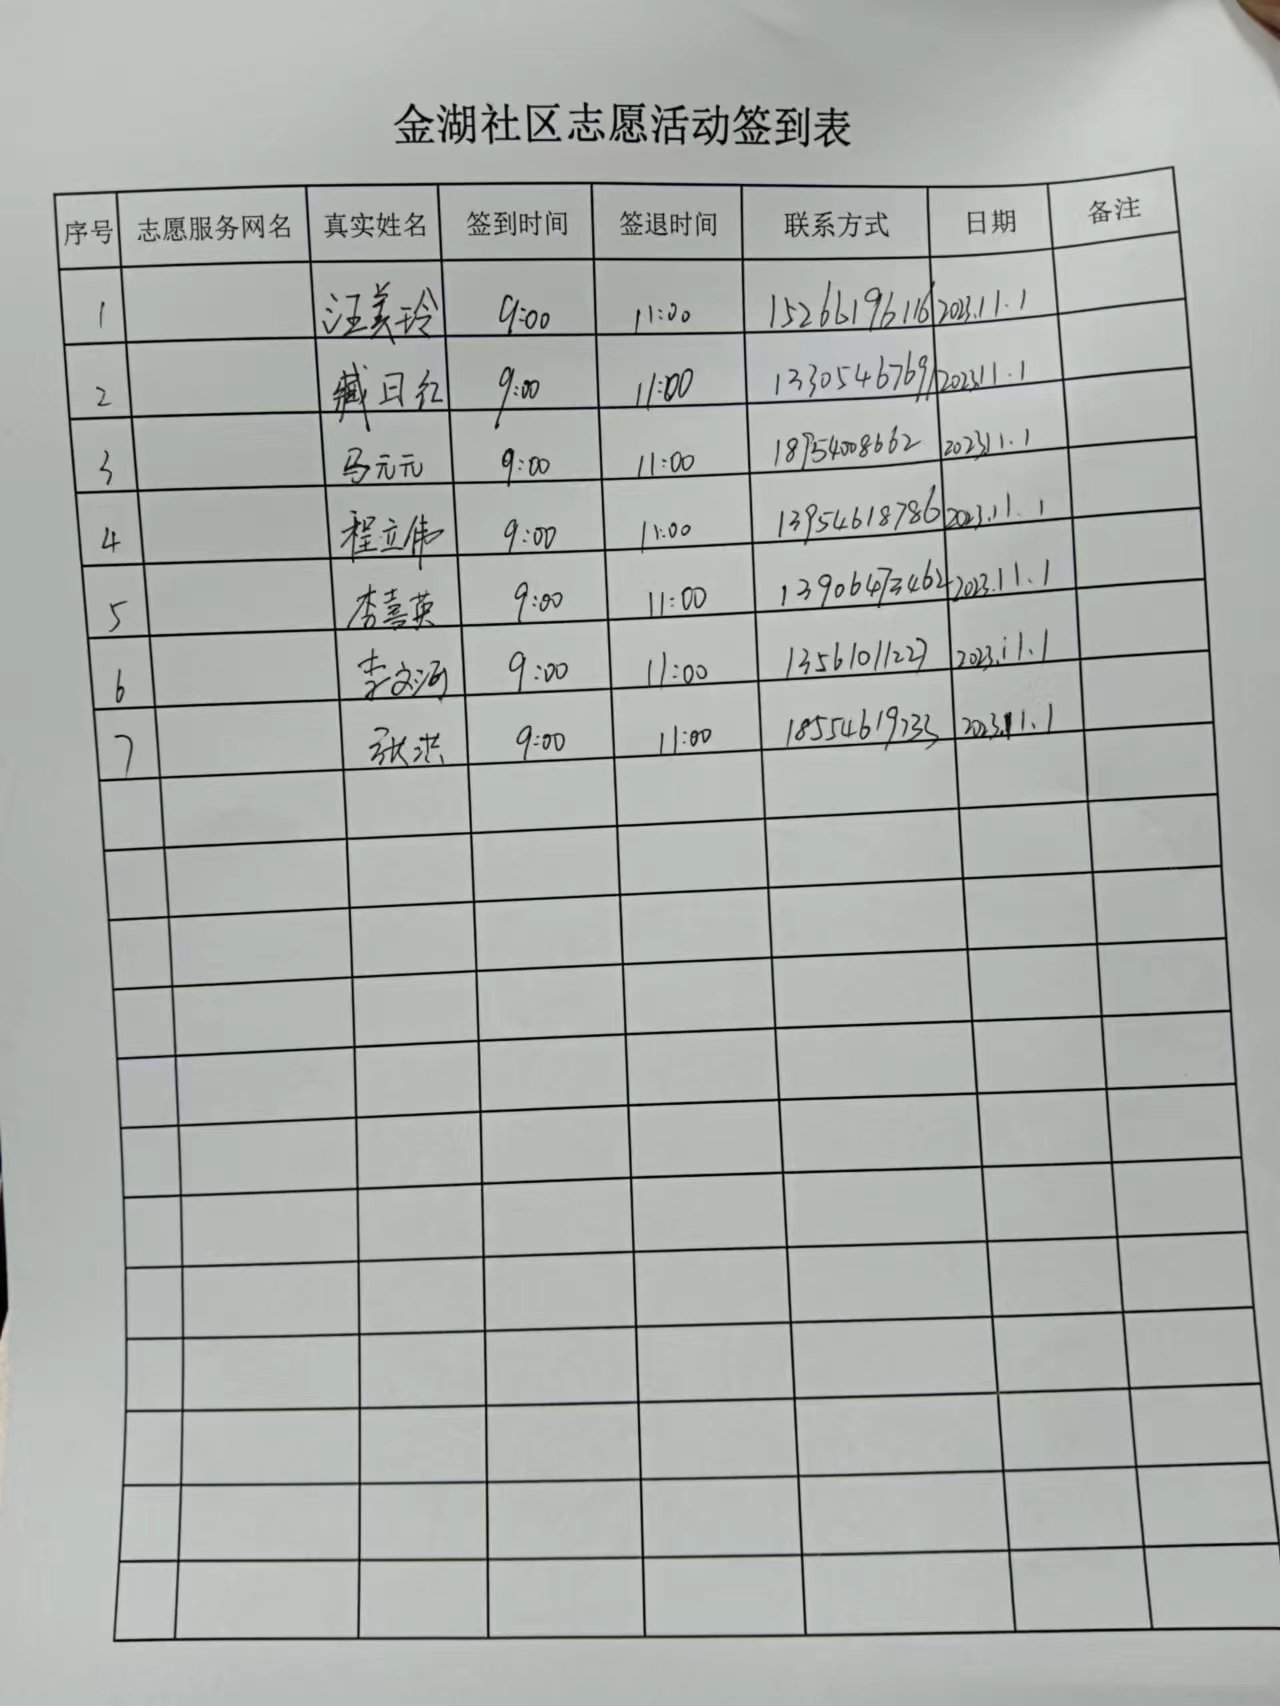 金湖社区志愿活动签到表
序号 志愿服务网名 真实姓名 签到时间 签退时间 联系方式 日期 备注
1 汪美玲 9:00 11:00 15266196116 2023.11.1
2 臧日红 9:00 11:00 13305467691 2023.11.1
3 马元元 9:00 11:00 18954008662 2023.11.1
4 程立伟 9:00 11:00 13954618786 2023.11.1
5 李喜英 9:00 11:00 13906473462 2023.11.1
6 李文涵 9:00 11:00 13561011227 2023.11.1
7 张洪 9:00 11:00 18554619733 2023.11.1